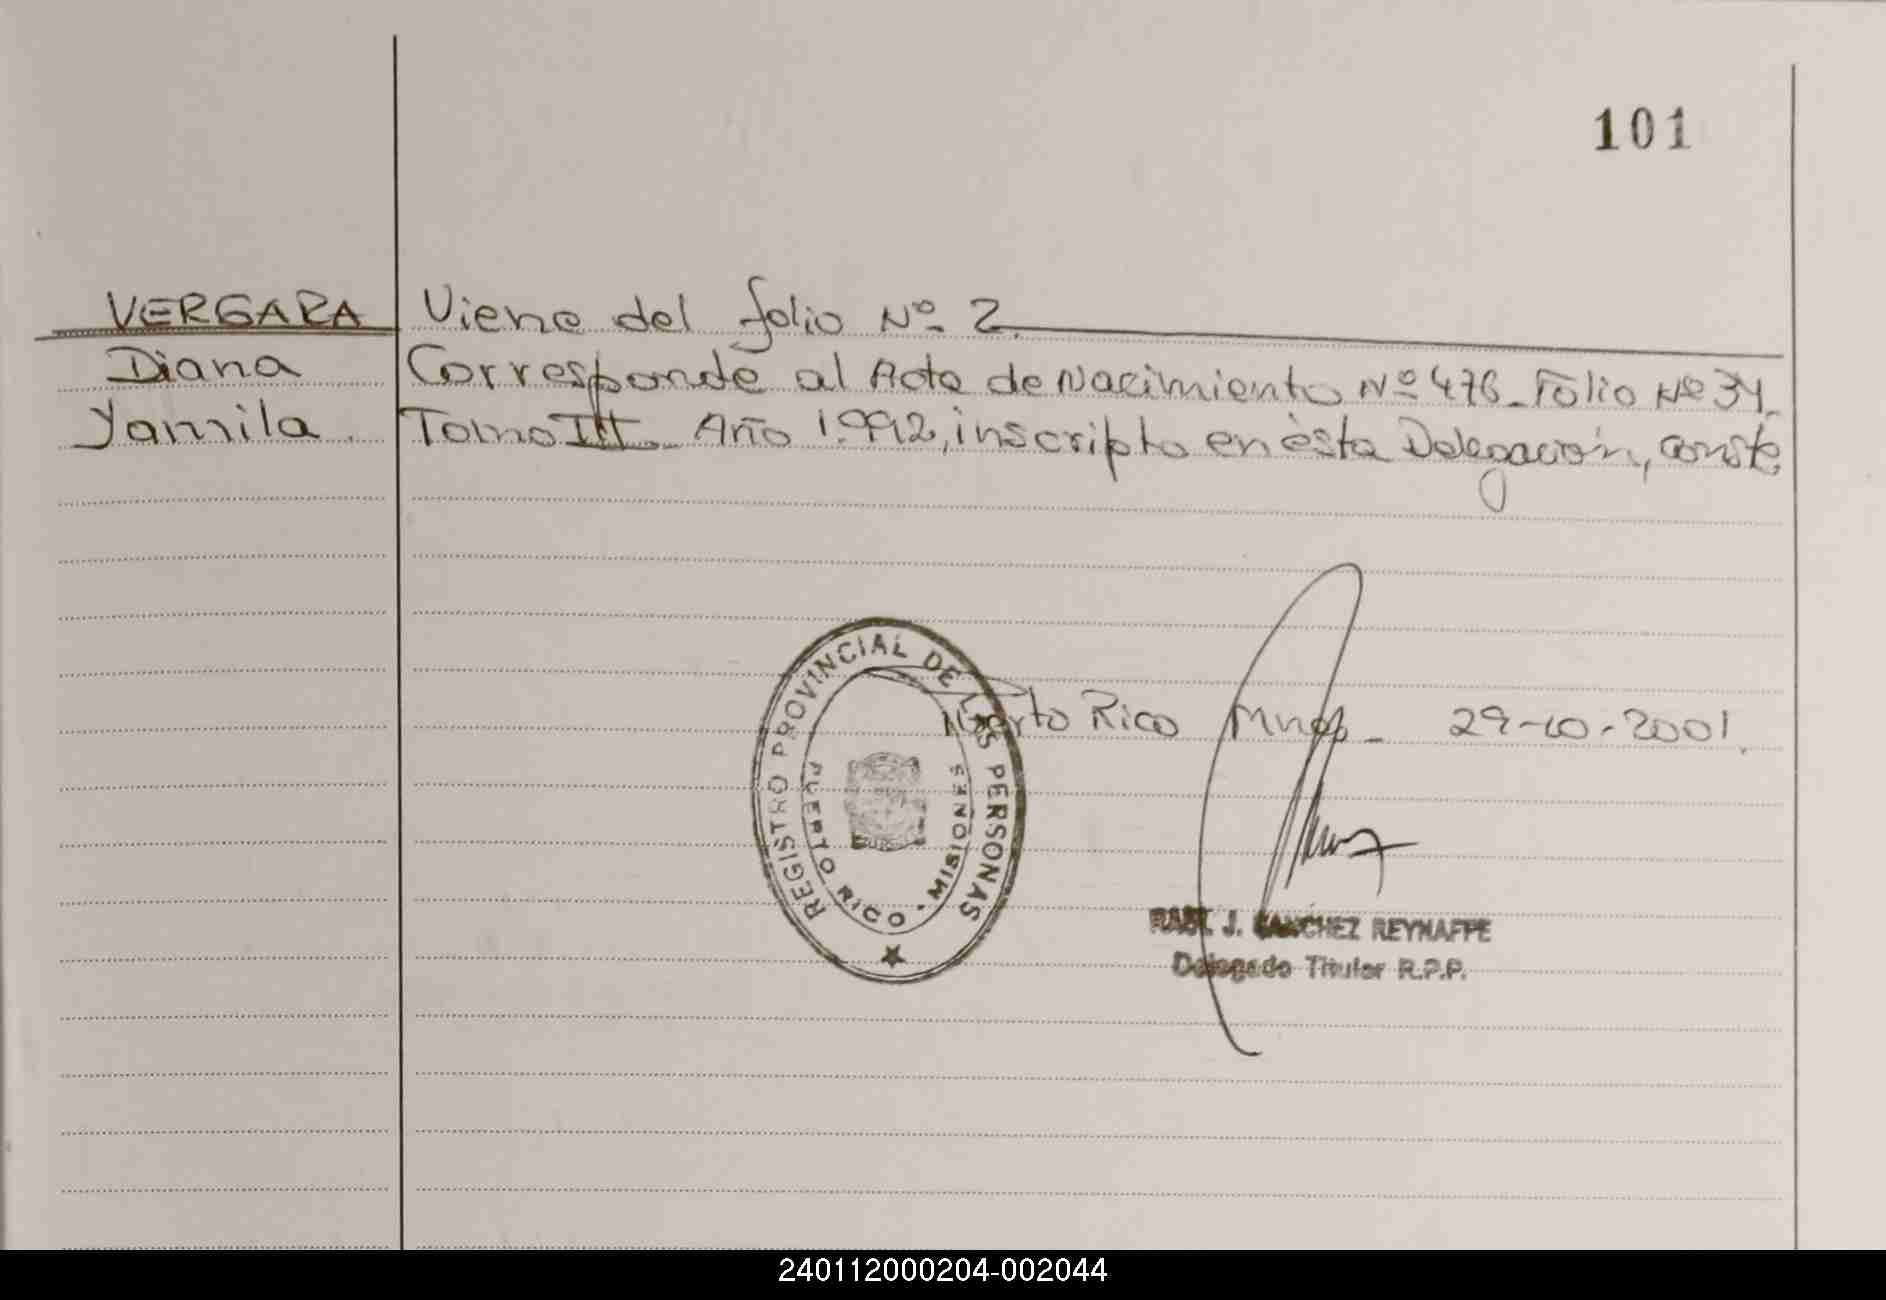 101
VERGARA Viene del folio Nº 2.
Diana Corresponde al Acta de Nacimiento Nº 476 - Folio Nº 34.
Yamila. Tomo III - Año 1.992, inscripto en ésta Delegación, conste.
REGISTRO PROVINCIAL DE LAS PERSONAS
PUERTO RICO - MISIONES
Puerto Rico Mnes - 29-10-2001.
RAUL J. SANCHEZ REYNAFFE
Delegado Titular R.P.P.
240112000204-002044